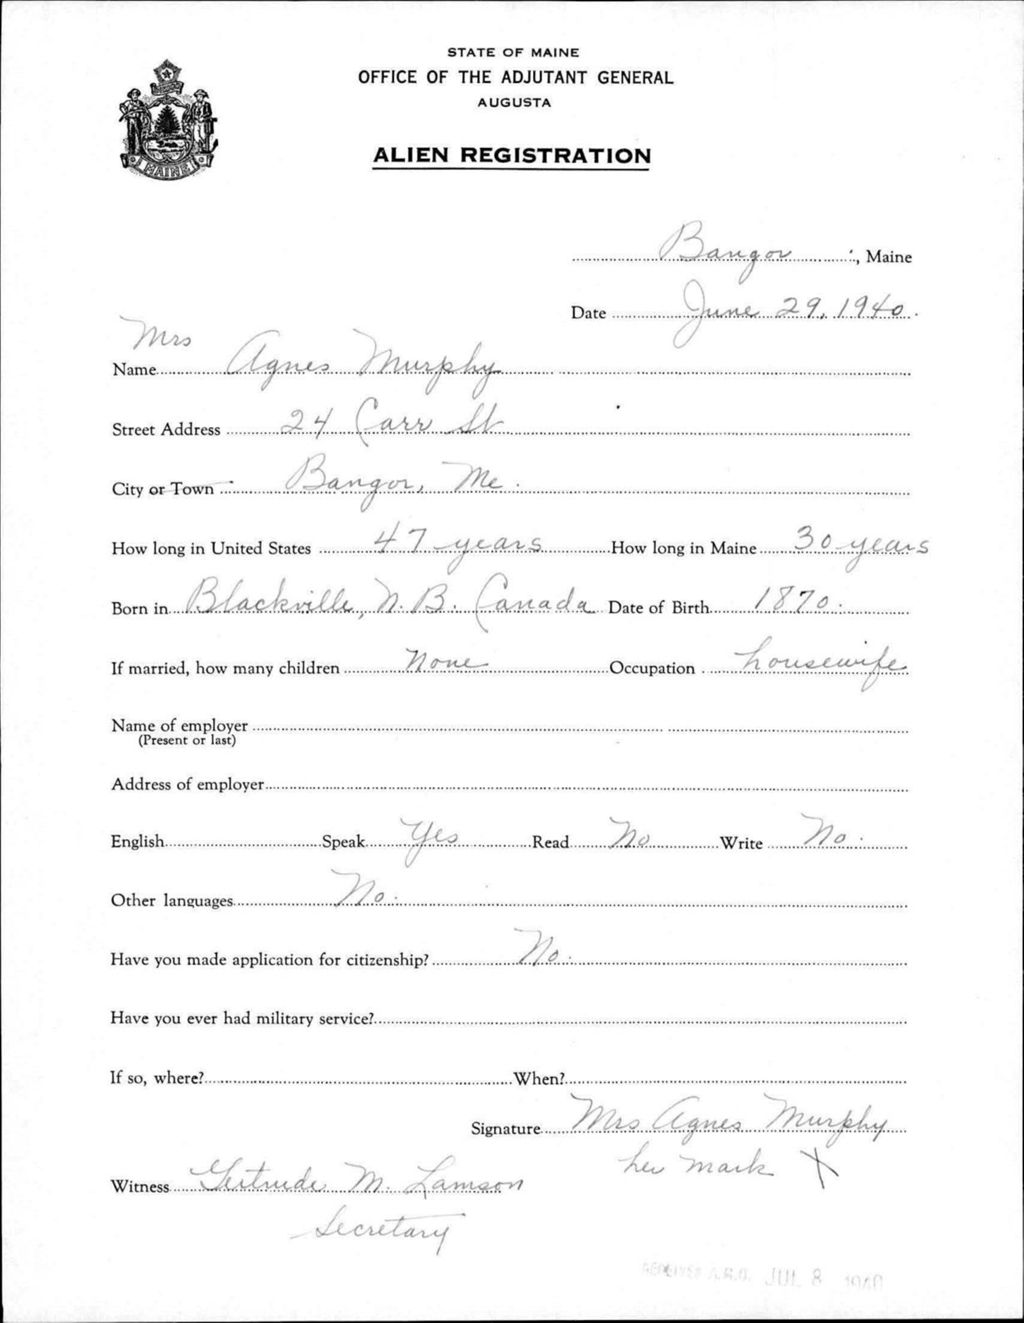 STATE OF MAINE
OFFICE OF THE ADJUTANT GENERAL
AUGUSTA
ALIEN REGISTRATION
MAINE
Bangor, Maine
Date June 29, 1940.
Mrs
Name Agnes Murphy
Street Address 24 Carr St
City or Town Bangor, Me.
How long in United States 47 years How long in Maine 30 years
Born in Blackville, N.B. Canada Date of Birth 1870.
If married, how many children None Occupation housewife
Name of employer
(Present or last)
Address of employer
English Speak Yes Read No Write No.
Other languages No.
Have you made application for citizenship? No.
Have you ever had military service?
If so, where? When?
Signature Mrs Agnes Murphy
her mark X
Witness Gertrude M. Lamson
Secretary
RECEIVED A.G.O. JUL 8 1940